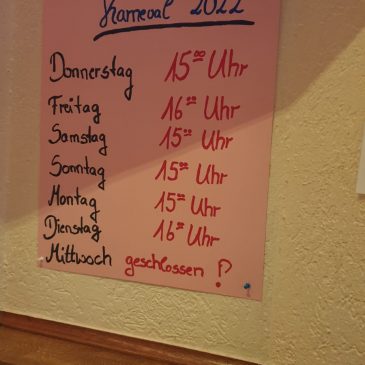 Karneval 2022
Donnerstag 15⁰⁰ Uhr
Freitag 16⁰⁰ Uhr
Samstag 15⁰⁰ Uhr
Sonntag 15⁰⁰ Uhr
Montag 15⁰⁰ Uhr
Dienstag 16⁰⁰ Uhr
Mittwoch geschlossen !?